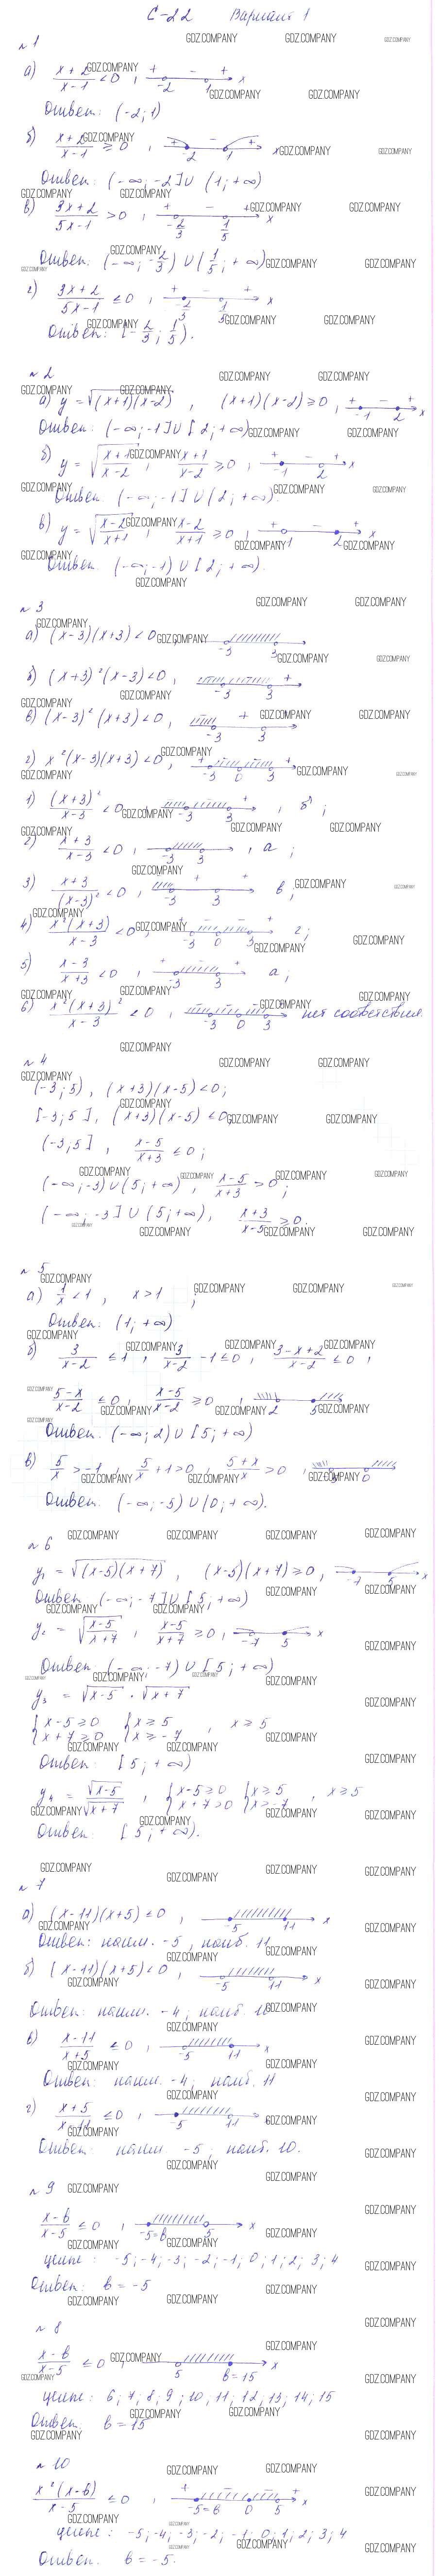 С-22 Вариант 1
№1
а) (x+2)/(x-1) < 0, + -2 - 1 + x
Ответ: (-2; 1)
б) (x+2)/(x-1) ≥ 0, -2 - 1 x
Ответ: (-∞; -2] ∪ (1; +∞)
в) (3x+2)/(5x-1) > 0, + -2/3 - 1/5 + x
Ответ: (-∞; -2/3) ∪ (1/5; +∞)
г) (3x+2)/(5x-1) ≤ 0, + -2/3 - 1/5 + x
Ответ: [-2/3; 1/5).
№2
а) y = √((x+1)(x-2)), (x+1)(x-2) ≥ 0, + -1 - 2 + x
Ответ: (-∞; -1] ∪ [2; +∞)
б) y = √((x+1)/(x-2)), (x+1)/(x-2) ≥ 0, + -1 - 2 + x
Ответ (-∞; -1] ∪ (2; +∞).
в) y = √((x-2)/(x+1)), (x-2)/(x+1) ≥ 0, + -1 - 2 + x
Ответ: (-∞; -1) ∪ [2; +∞).
№3
а) (x-3)(x+3) < 0, -3 3
б) (x+3)²(x-3) < 0, -3 3 +
в) (x-3)²(x+3) < 0, -3 + 3
г) x²(x-3)(x+3) < 0, + -3 0 3 +
1) (x+3)²/(x-3) < 0, -3 3 +, б;
2) (x+3)/(x-3) < 0, -3 3, а;
3) (x+3)/(x-3)² < 0, -3 + 3 +, в;
4) x²(x+3)/(x-3) < 0, + -3 0 3 +, г;
5) (x-3)/(x+3) < 0, + -3 3 +, а;
6) x²(x+3)²/(x-3) < 0, -3 0 3, нет соответствия.
№4
(-3; 5), (x+3)(x-5) < 0;
[-3; 5], (x+3)(x-5) ≤ 0;
(-3; 5], (x-5)/(x+3) ≤ 0;
(-∞; -3) ∪ (5; +∞), (x-5)/(x+3) > 0;
(-∞; -3] ∪ (5; +∞), (x+3)/(x-5) ≥ 0.
№5
а) 1/x < 1, x > 1,
Ответ: (1; +∞)
б) 3/(x-2) ≤ 1, 3/(x-2) - 1 ≤ 0, (3-x+2)/(x-2) ≤ 0,
(5-x)/(x-2) ≤ 0, (x-5)/(x-2) ≥ 0, 2 5
Ответ: (-∞; 2) ∪ [5; +∞)
в) 5/x > -1, 5/x + 1 > 0, (5+x)/x > 0, -5 0
Ответ: (-∞; -5) ∪ (0; +∞).
№6
y₁ = √((x-5)(x+7)), (x-5)(x+7) ≥ 0, -7 5 x
Ответ (-∞; -7] ∪ [5; +∞)
y₂ = √((x-5)/(x+7)), (x-5)/(x+7) ≥ 0, -7 5 x
Ответ (-∞; -7) ∪ [5; +∞)
y₃ = √(x-5) · √(x+7)
{x-5 ≥ 0 {x ≥ 5, x ≥ 5
{x+7 ≥ 0 {x ≥ -7
Ответ: [5; +∞)
y₄ = √(x-5)/√(x+7), {x-5 ≥ 0 {x ≥ 5, x ≥ 5
{x+7 > 0 {x > -7
Ответ: [5; +∞).
№7
а) (x-11)(x+5) ≤ 0, -5 11 x
Ответ: наим. -5, наиб. 11
б) (x-11)(x+5) < 0, -5 11 x
Ответ: наим. -4; наиб. 10
в) (x-11)/(x+5) ≤ 0, -5 11 x
Ответ: наим. -4; наиб. 11
г) (x+5)/(x-11) ≤ 0, -5 11 x
Ответ: наим -5; наиб. 10.
№9
(x-b)/(x-5) ≤ 0, -5=b 5 x
целые: -5; -4; -3; -2; -1; 0; 1; 2; 3; 4
Ответ: b = -5
№8
(x-b)/(x-5) ≤ 0, 5 b=15 x
целые: 6; 7; 8; 9; 10; 11; 12; 13; 14; 15
Ответ: b = 15
№10
x²(x-b)/(x-5) ≤ 0, + -5=b - 0 - 5 + x
целые: -5; -4; -3; -2; -1; 0; 1; 2; 3; 4
Ответ: b = -5.
GDZ.COMPANY